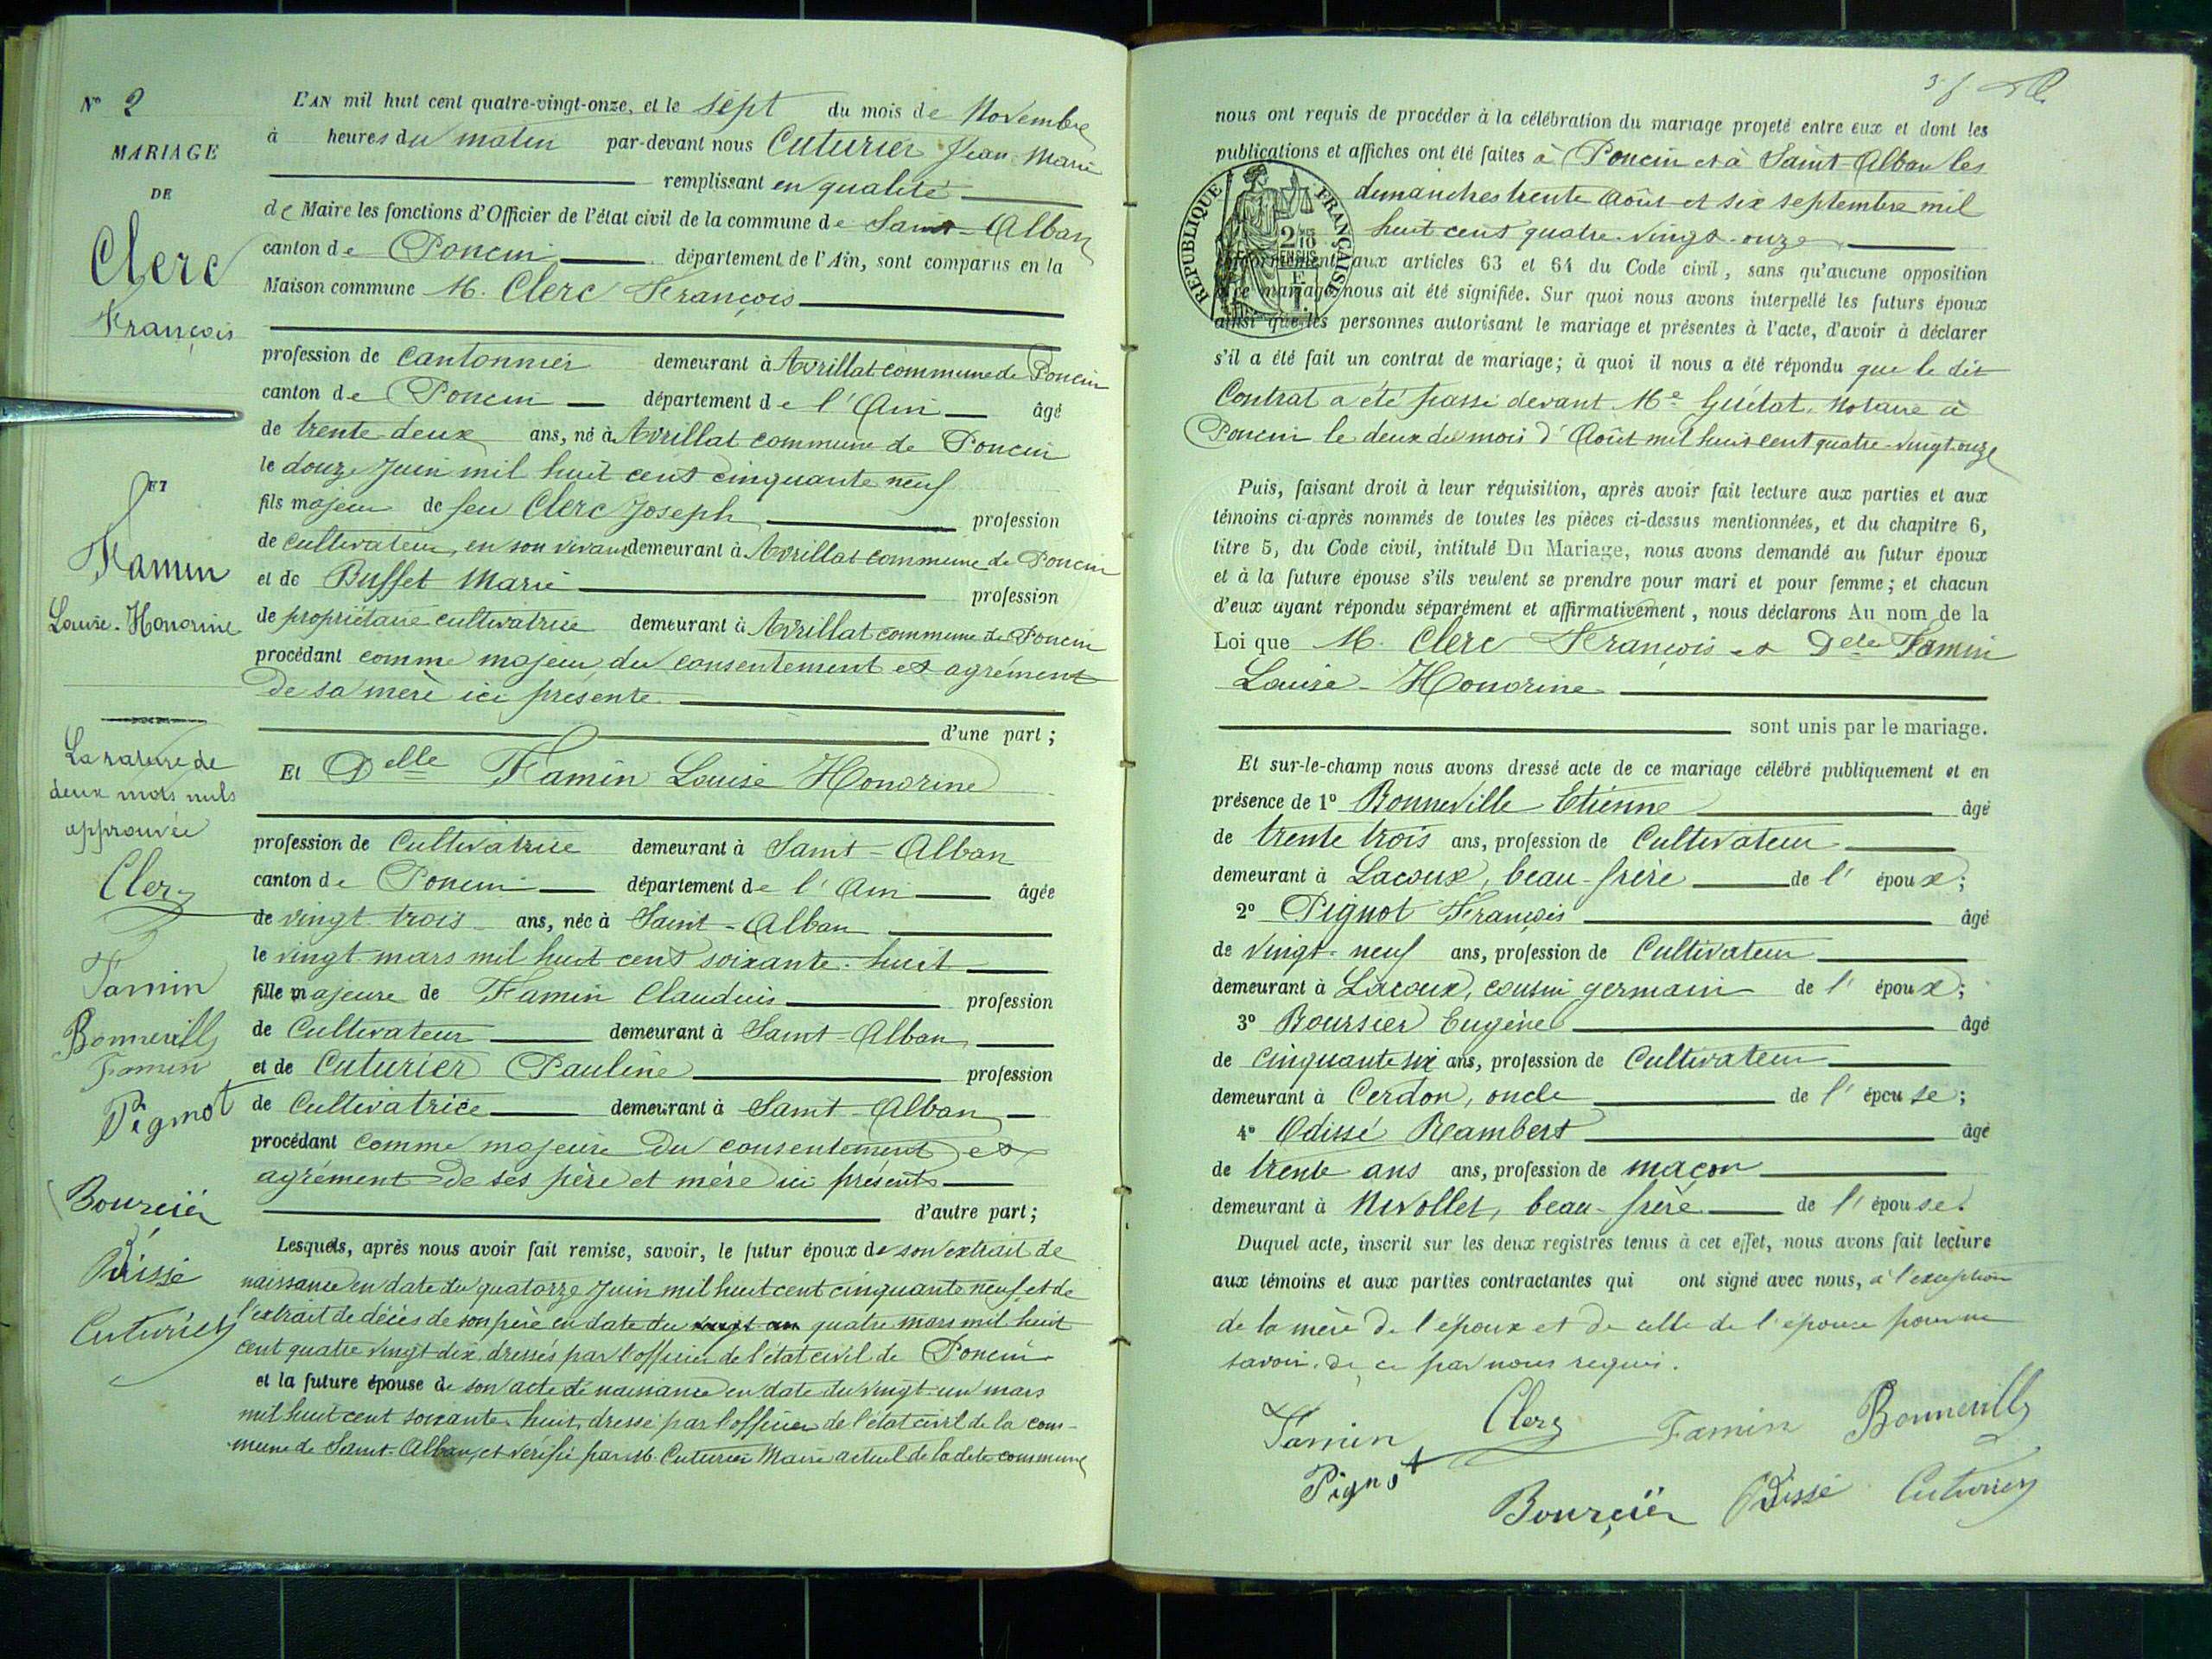 N° 2
MARIAGE
DE
Clerc
François
ET
Famin
Louise-Honorine
La rature de
deux mots nuls
approuvée
Clerc
Famin
Bonnevill
Famin
Pignot
Bourcier
Odissé
Cuturier
L'AN mil huit cent quatre-vingt-onze, et le sept du mois de Novembre
à heures du matin par-devant nous Cuturier Jean-Marie
remplissant en qualité
de Maire les fonctions d'Officier de l'état civil de la commune de Saint-Alban
canton de Poncin département de l'Ain, sont comparus en la
Maison commune M. Clerc François
profession de cantonnier demeurant à Avrillat commune de Poncin
canton de Poncin département de l'Ain âgé
de trente-deux ans, né à Avrillat commune de Poncin
le douze Juin mil huit cent cinquante neuf
fils majeur de feu Clerc Joseph profession
de cultivateur, en son vivant demeurant à Avrillat commune de Poncin
et de Buffet Marie profession
de propriétaire cultivatrice demeurant à Avrillat commune de Poncin
procédant comme majeur du consentement et agrément
de sa mère ici présente
d'une part ;
Et Delle Famin Louise Honorine
profession de Cultivatrice demeurant à Saint-Alban
canton de Poncin département de l'Ain âgée
de vingt-trois ans, née à Saint-Alban
le vingt mars mil huit cent soixante-huit
fille majeure de Famin Claudius profession
de Cultivateur demeurant à Saint-Alban
et de Cuturier Pauline profession
de Cultivatrice demeurant à Saint-Alban
procédant comme majeure du consentement et
agrément de ses père et mère ici présents
d'autre part ;
Lesquels, après nous avoir fait remise, savoir, le futur époux de son extrait de
naissance en date du quatorze Juin mil huit cent cinquante neuf, et de
l'extrait de décès de son père en date du vingt un quatre mars mil huit
cent quatre vingt dix, dressés par l'officier de l'état civil de Poncin
et la future épouse de son acte de naissance en date du vingt-un mars
mil huit cent soixante-huit, dressé par l'officier de l'état civil de la com-
mune de Saint-Alban, et vérifié par M. Cuturier Maire actuel de la dite commune
nous ont requis de procéder à la célébration du mariage projeté entre eux et dont les
publications et affiches ont été faites à Poncin et à Saint-Alban les
dimanches trente Août et six septembre mil
huit cent quatre-vingt-onze
conformément aux articles 63 et 64 du Code civil, sans qu'aucune opposition
à ce mariage nous ait été signifiée. Sur quoi nous avons interpellé les futurs époux
ainsi que les personnes autorisant le mariage et présentes à l'acte, d'avoir à déclarer
s'il a été fait un contrat de mariage ; à quoi il nous a été répondu que le dit
Contrat a été passé devant Me Guétat, Notaire à
Poncin le deux du mois d'Août mil huit cent quatre-vingt-onze
RÉPUBLIQUE FRANÇAISE
Puis, faisant droit à leur réquisition, après avoir fait lecture aux parties et aux
témoins ci-après nommés de toutes les pièces ci-dessus mentionnées, et du chapitre 6,
titre 5, du Code civil, intitulé Du Mariage, nous avons demandé au futur époux
et à la future épouse s'ils veulent se prendre pour mari et pour femme ; et chacun
d'eux ayant répondu séparément et affirmativement, nous déclarons Au nom de la
Loi que M. Clerc François et Delle Famin
Louise-Honorine
sont unis par le mariage.
Et sur-le-champ nous avons dressé acte de ce mariage célébré publiquement et en
présence de 1° Bonneville Etienne âgé
de trente trois ans, profession de Cultivateur
demeurant à Lacoux, beau-frère de l'époux ;
2° Pignot François âgé
de vingt-neuf ans, profession de Cultivateur
demeurant à Lacoux, cousin germain de l'époux ;
3° Boursier Eugène âgé
de cinquante six ans, profession de Cultivateur
demeurant à Cerdon, oncle de l'épouse ;
4° Odissé Rambert âgé
de trente ans ans, profession de maçon
demeurant à Nivollet, beau-frère de l'épouse.
Duquel acte, inscrit sur les deux registres tenus à cet effet, nous avons fait lecture
aux témoins et aux parties contractantes qui ont signé avec nous, à l'exception
de la mère de l'époux et de celle de l'épouse pour ne
savoir, de ce par nous requis.
Famin Clerc Famin Bonnevill
Pignot Bourcier Odissé Cuturier